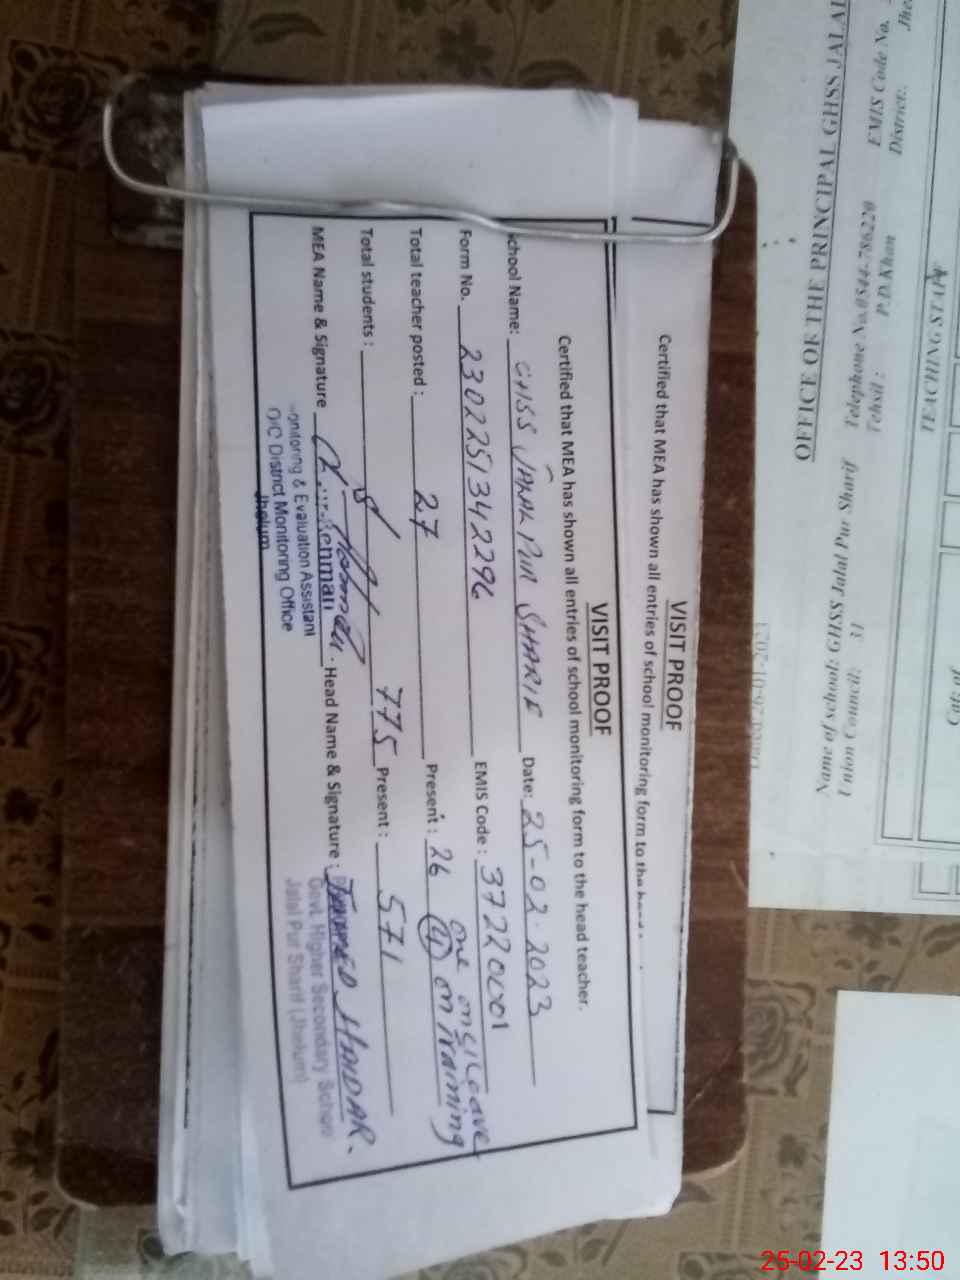 VISIT PROOF
Certified that MEA has shown all entries of school monitoring form to the
VISIT PROOF
Certified that MEA has shown all entries of school monitoring form to the head teacher.
School Name: GHSS JALAL PUR SHARIF Date: 25-02-2023
Form No. 230225134229 EMIS Code: 37220001
one on s/Leave
Total teacher posted: 27 Present: 26 (4) on Training
Total students: 775 Present: 571
MEA Name & Signature Head Name & Signature:
Monitoring & Evaluation Assistant
O/C District Monitoring Office
Jhelum
Govt. Higher Secondary School
Jalal Pur Sharif (Jhelum)
OFFICE OF THE PRINCIPAL GHSS JALAL
Dated 26-01-2023
Name of school: GHSS Jalal Pur Sharif
Union Council: 31
Tehsil: P.D.Khan
District:
Telephone No. 0544-286220
EMIS Code No.
TEACHING STAFF
25-02-23 13:50